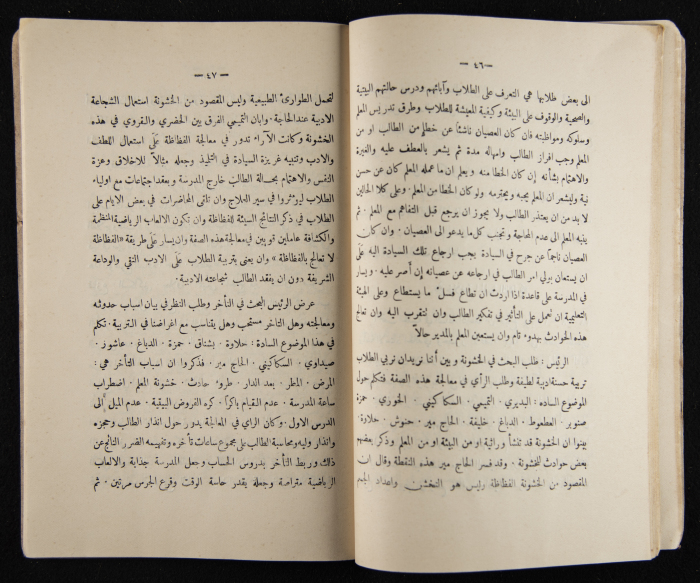 — ٤٦ —
الى بعض طلابها هي التعرف على الطلاب وآبائهم ودرس حالتهم البيتية
والصحية والوقوف على البيئة وكيفية المعيشة للطلاب وطرق تدريس المعلم
وسلوكه ومواظبته فان كان العصيان ناشئاً عن خطأٍ من الطالب او من
المعلم وجب افراز الطالب وامهاله مدة ثم يشعر بالعطف عليه والغيرة
والاهتمام بشأنه إن كان الخطأ منه ويعلم ان ما عمله المعلم كان عن حسن
نية وليشعر ان المعلم يحبه ويحترمه ولو كان الخطأ من المعلم. وعلى كلا الحالين
لا بد من ان يعتذر الطالب ولا يجوز ان يرجع قبل التفاهم مع المعلم. ثم
ينبه المعلم الى عدم المهاجة وتجنب كل ما يدعو الى العصيان. وان كان
العصيان ناجماً عن جرح في السيادة يجب ارجاع تلك السيادة اليه على
ان يستعان بولي امر الطالب في ارجاعه عن عصيانه إن أصر عليه. ويسار
في المدرسة على قاعدة اذا اردت ان تطاع فسل ما يستطاع وعلى الهيئة
التعليمية ان تعمل على التأثير في تفكير الطالب وان تتقرب اليه وان تعالج
هذه الحوادث بهدوء تام وان يستعين المعلم بالمدير حالاً
الرئيس: طلب البحث في الخشونة وبين أننا نريدان نربي الطلاب
تربية جسنادبية لطيفة وطلب الرأي في معالجة هذه الصفة فتكلم حول
الموضوع الساده: البديري. التميمي. السكاكيني. الخوري. حمزة
صنوبر. الطعموط. الدباغ. خليفة. الحاج مير. حنوش. حلاوة.
بينوا ان الخشونة قد تنشأ وراثية او من البيئة او من المعلم وذكر بعضهم
بعض حوادث للخشونة. وقد فسر الحاج مير هذه النقطة وقال ان
المقصود من الخشونة الفظاظة وليس هو التخشن واعداد الجسم
— ٤٧ —
لتحمل الطوارئ الطبيعية وليس المقصود من الخشونة استعمال الشجاعة
الادبية عند الحاجة. وابان التميمي الفرق بين الحضري والقروي في هذه
الخشونة وكانت الآراء تدور في معالجة الفظاظة عَلَى استعمال اللطف
والأدب وتنبيه غريزة السيادة في التلميذ وجعله مثالاً للاخلاق وعزة
النفس والاهتمام بحالة الطالب خارج المدرسة وبعقد اجتماعات مع اولياء
الطلاب ليؤثروا في سير العلاج وان تلقى المحاضرات في بعض الايام على
الطلاب في ذكر النتائج السيئة للفظاظة وان تكون الالعاب الرياضية المنظمة
والكشافة عاملين قويين في معالجة هذه الصفة وان يسار عَلَى طريقة «الفظاظة
لا تعالج بالفظاظة» وان يعنى بتربية الطلاب عَلَى الادب النقي والوداعة
الشريفة دون ان يفقد الطالب شجاعته الادبية.
عرض الرئيس البحث في التأخر وطلب النظر في بيان اسباب حدوثه
ومعالجته وهل التأخر مستحب وهل يتناسب مع اغراضنا في التربية. تكلم
في هذا الموضوع السادة: حلاوة. بشناق. حمزة. الدباغ. عاشوز.
صيداوي. السكاكيني. الحاج مير. فذكروا ان اسباب التأخر هي:
المرض. المطر. بعد الدار. طروء حادث. خشونة المعلم. اضطراب
ساعة المدرسة. عدم القيام باكراً. كره الفروض البيتية. عدم الميل إلى
الدرس الاول. وكان الراي في المعالجة يدور حول انذار الطالب وحجزه
وانذار وليه ومحاسبة الطالب على مجموع ساعات تأخره وتفهيمه الضرر الناتج عن
ذلك وربط التأخر بدروس الحساب وجعل المدرسة جذابة والالعاب
الرياضية متراصة وجعله يقدر حاسة الوقت وقرع الجرس مرتين. ثم